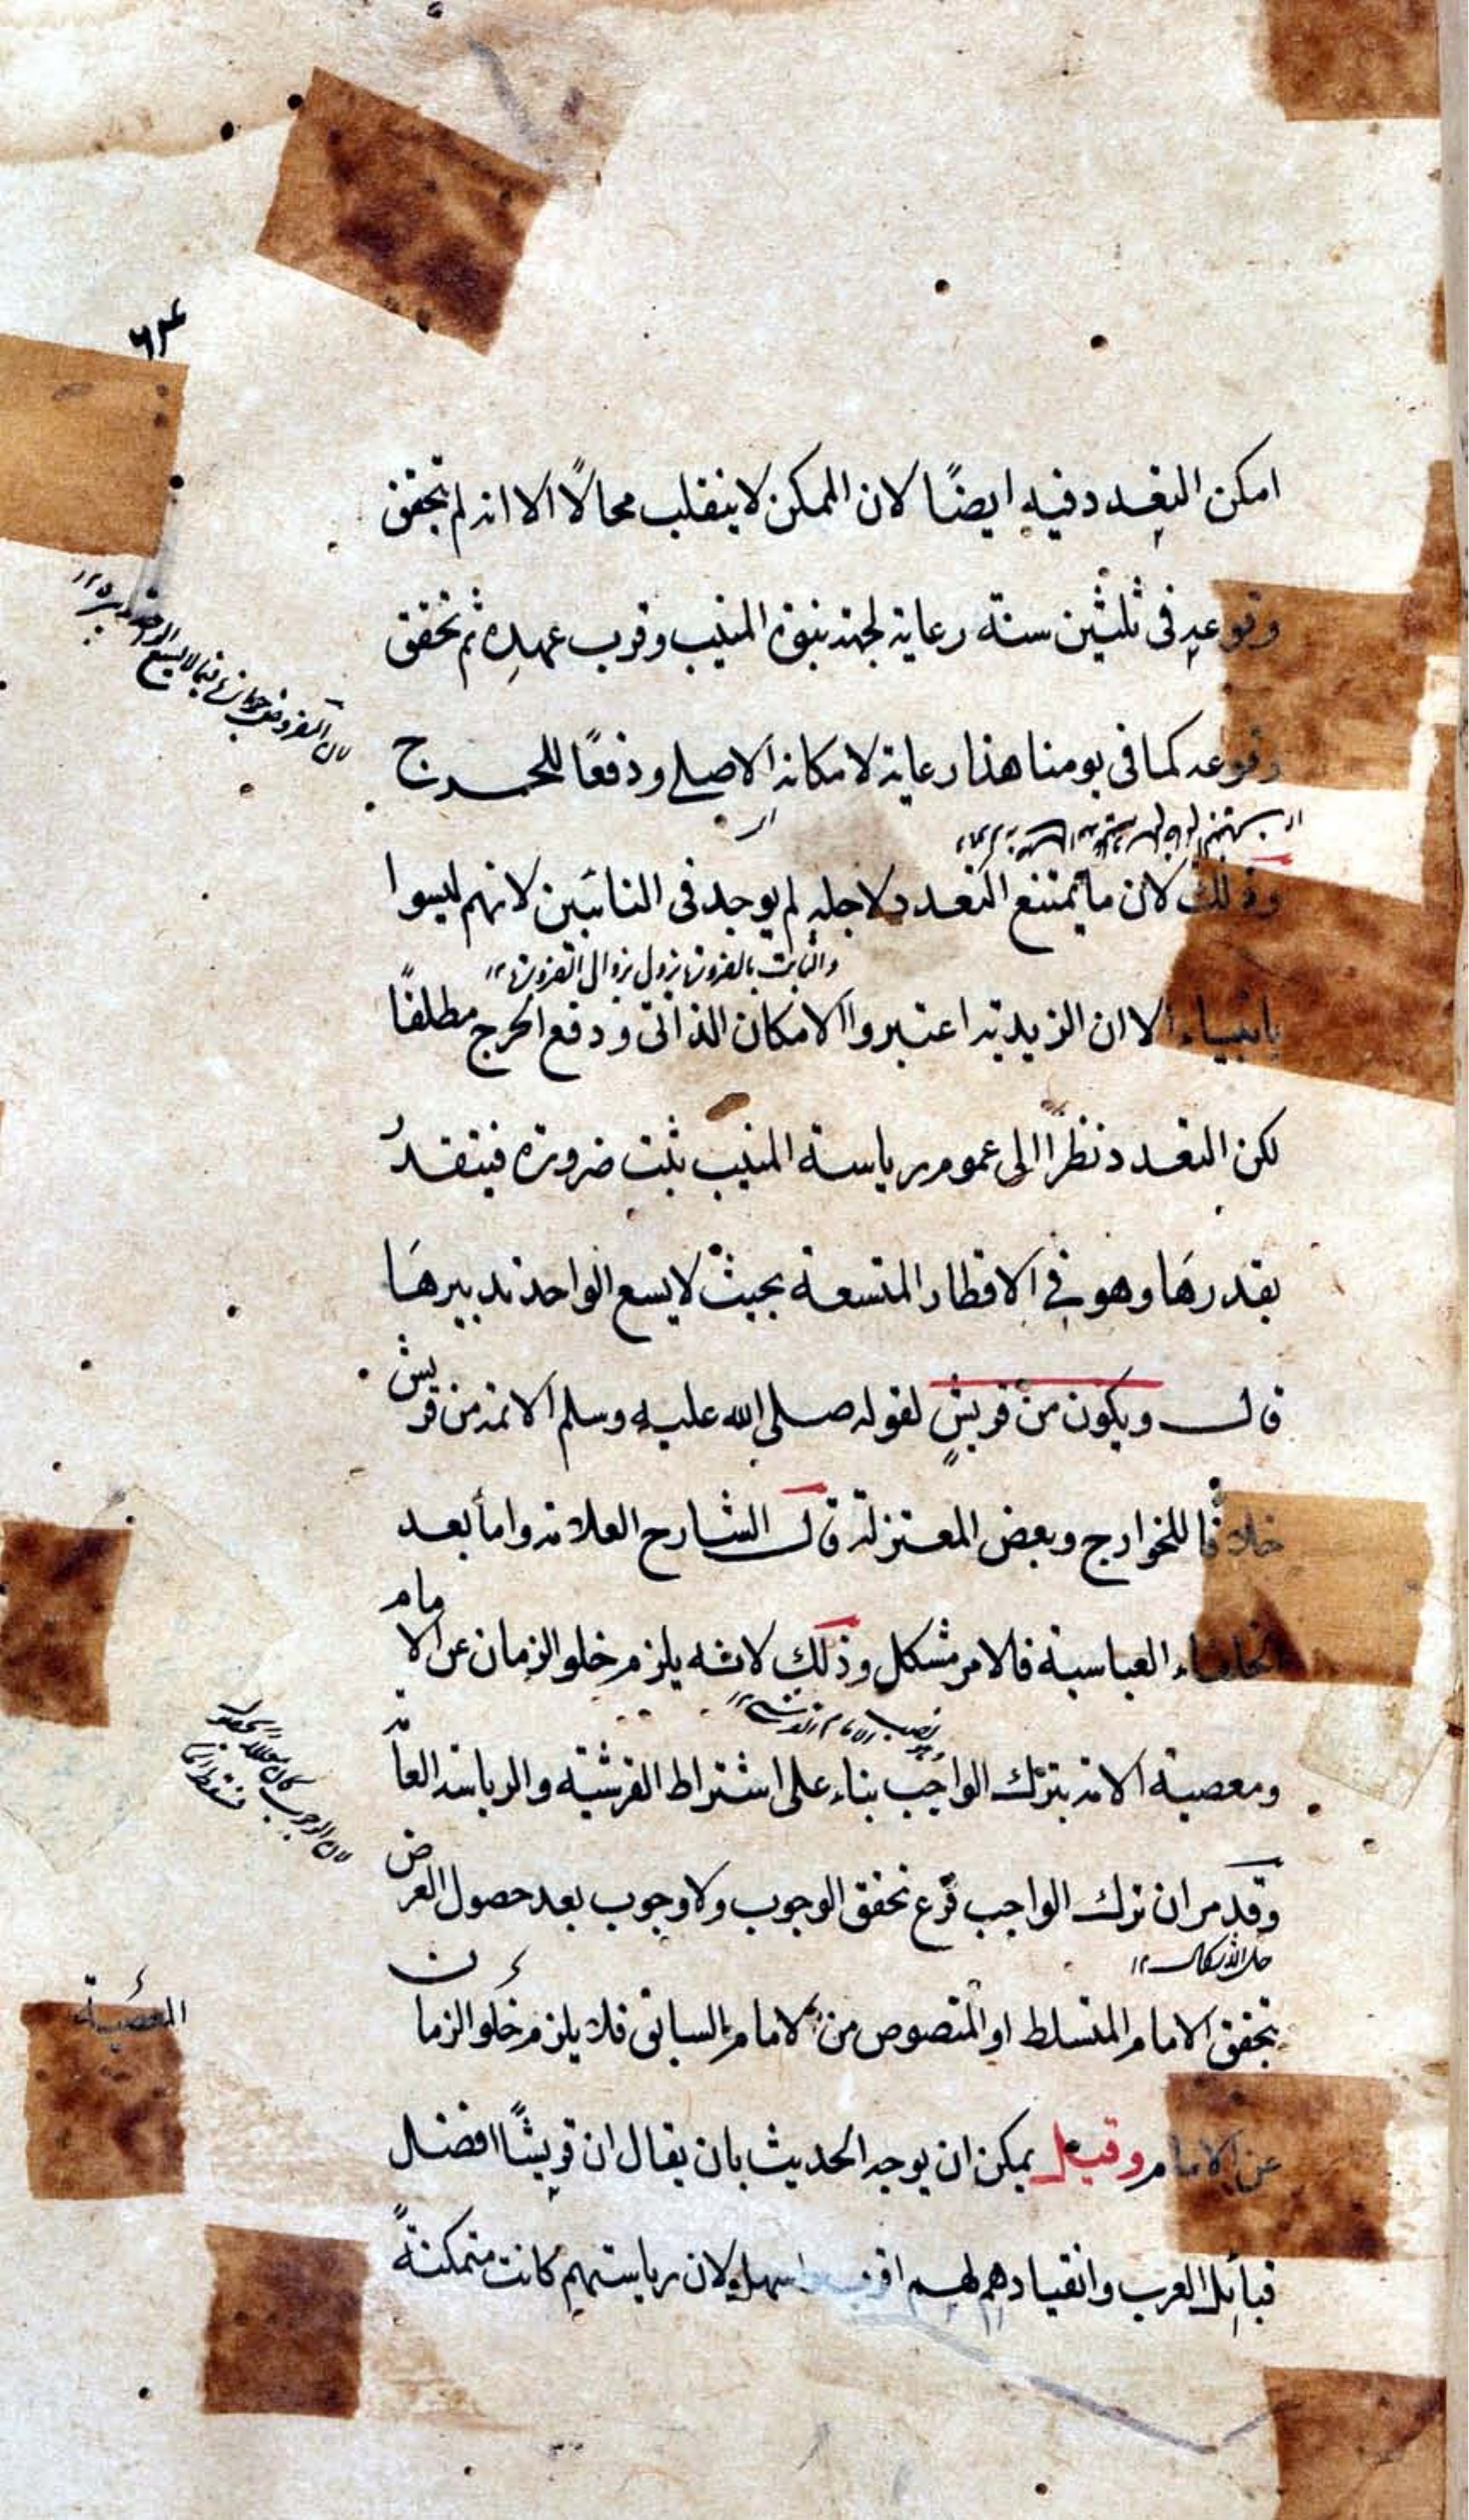 ٦٣
امكن التعدد فيه ايضًا لان الممكن لا ينقلب محالًا الا انه لم يتحقق
وقوعه فى ثلثين سنة رعاية لجهة نبوة المنيب وقرب عهده ثم تحقق
وقوعه كما فى يومنا هذا رعاية لامكانه الاصلى ودفعًا للحرج
وذلك لان ما يمتنع التعدد لاجله لم يوجد فى النائبين لانهم ليسوا
والثابت بالضرورة يزول بزوال الضرورة ١٢
بانبياء الا ان الزيدية اعتبروا الامكان الذاتى ودفع الحرج مطلقًا
لكن التعدد نظرًا الى عموم رياسة المنيب ثبت ضرورة فيتقدر
بقدرها وهو فى الاقطار المتسعة بحيث لا يسع الواحد تدبيرها
قال ويكون من قريشٍ لقوله صلى الله عليه وسلم الائمة من قريش
خلافًا للخوارج وبعض المعتزلة قال الشارح العلامة واما بعد
الخلفاء العباسية فالامر مشكل وذلك لانه يلزم خلو الزمان عن الامام
وهو نصب الامام القرشى ١٢
ومعصية الامة بترك الواجب بناء على اشتراط القرشية والرياسة العامة
وقد مر ان ترك الواجب فرع تحقق الوجوب ولا وجوب بعد حصول الغرض
حل الاشكال ١٢
بتحقق الامام المتسلط او المنصوص من الامام السابق فلا يلزم خلو الزمان
المعصية
عن الامام وقيل يمكن ان يوجه الحديث بان يقال ان قريشًا افضل
قبائل العرب وانقيادهم لهم اقرب واسهل ولان رياستهم كانت متمكنةً